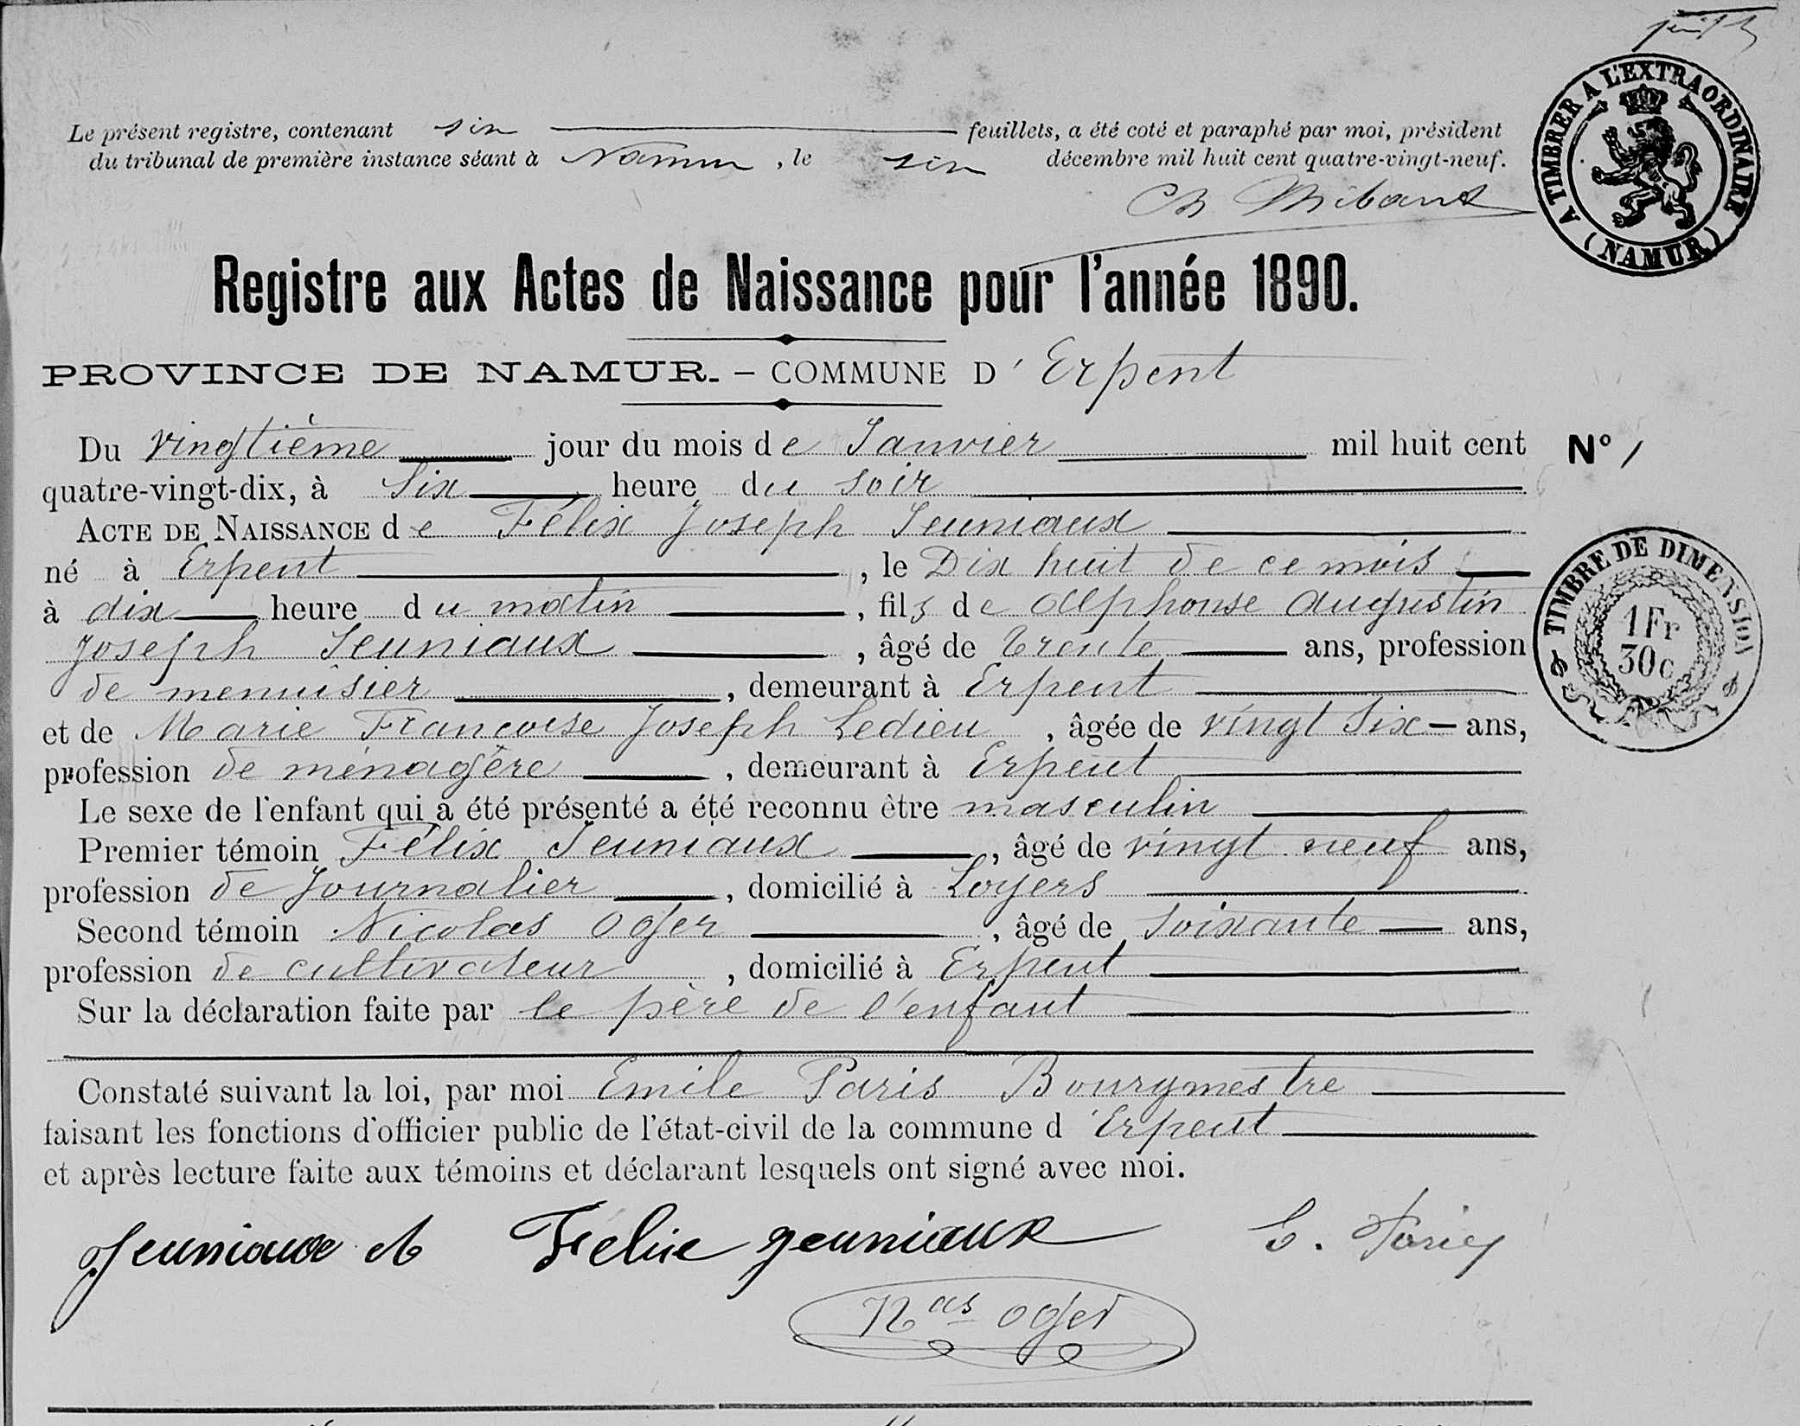 Le présent registre, contenant six feuillets, a été coté et paraphé par moi, président
du tribunal de première instance séant à Namur, le six décembre mil huit cent quatre-vingt-neuf.
A TIMBRER A L'EXTRAORDINAIRE
(NAMUR)
Registre aux Actes de Naissance pour l'année 1890.
PROVINCE DE NAMUR. – COMMUNE D' Erpent
Du vingtième jour du mois de Janvier mil huit cent
N° 1
quatre-vingt-dix, à Six heure du soir
ACTE DE NAISSANCE de Félix Joseph Jeuniaux
né à Erpent, le Dix huit de ce mois
à dix heure du matin, fils de Alphonse Augustin
Joseph Jeuniaux, âgé de trente ans, profession
de menuisier, demeurant à Erpent
et de Marie Françoise Joseph Ledieu, âgée de vingt Six ans,
profession de ménagère, demeurant à Erpent
Le sexe de l'enfant qui a été présenté a été reconnu être masculin
Premier témoin Félix Jeuniaux, âgé de vingt neuf ans,
profession de Journalier, domicilié à Loyers
Second témoin Nicolas Oger, âgé de Soixante ans,
profession de cultivateur, domicilié à Erpent
Sur la déclaration faite par le père de l'enfant
Constaté suivant la loi, par moi Emile Paris Bourgmestre
faisant les fonctions d'officier public de l'état-civil de la commune d'Erpent
et après lecture faite aux témoins et déclarant lesquels ont signé avec moi.
TIMBRE DE DIMENSION
1 Fr
30 c
Jeuniaux A Félix Jeuniaux E. Paris
Nas Oger